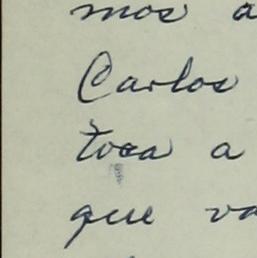 mos a
Carlos
toca a
que va